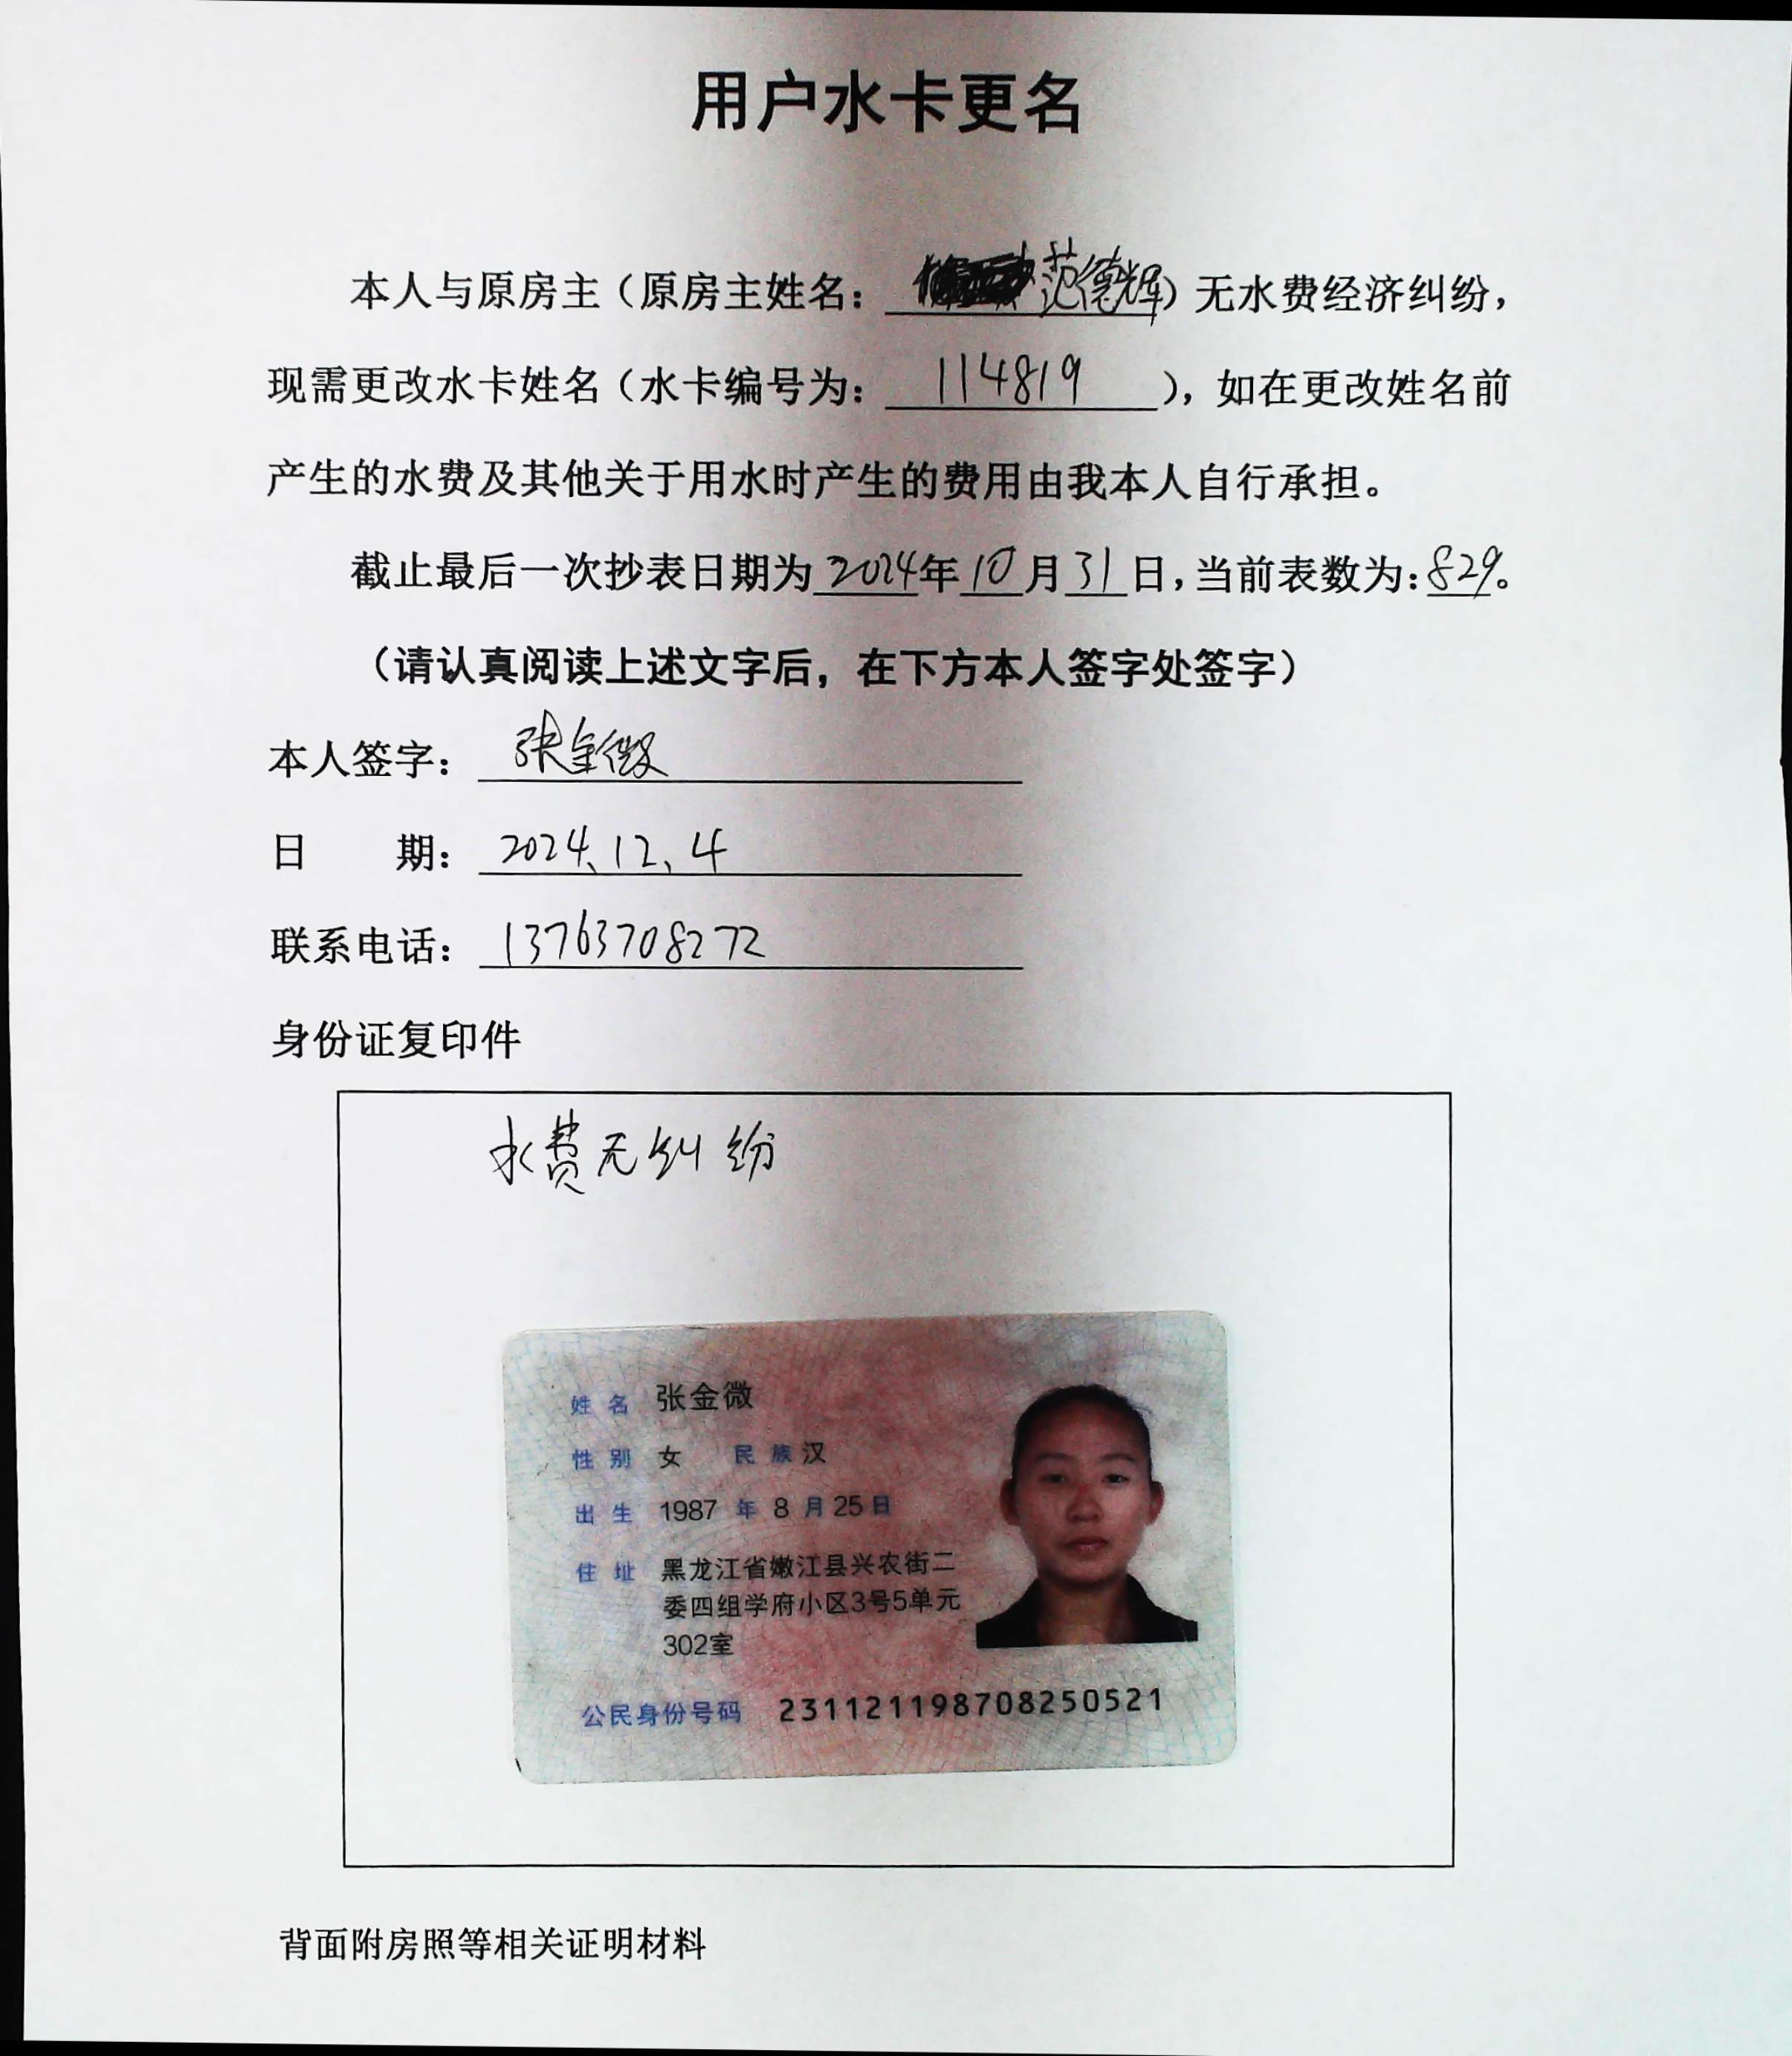 用户水卡更名
本人与原房主（原房主姓名：范德辉）无水费经济纠纷，
现需更改水卡姓名（水卡编号为：114819），如在更改姓名前
产生的水费及其他关于用水时产生的费用由我本人自行承担。
截止最后一次抄表日期为2024年10月31日，当前表数为：829。
（请认真阅读上述文字后，在下方本人签字处签字）
本人签字：张金微
日 期：2024、12、4
联系电话：13763708272
身份证复印件
水费无纠纷
姓名 张金微
性别 女 民族 汉
出生 1987 年 8 月 25 日
住址 黑龙江省嫩江县兴农街二
委四组学府小区3号5单元
302室
公民身份号码 231121198708250521
背面附房照等相关证明材料